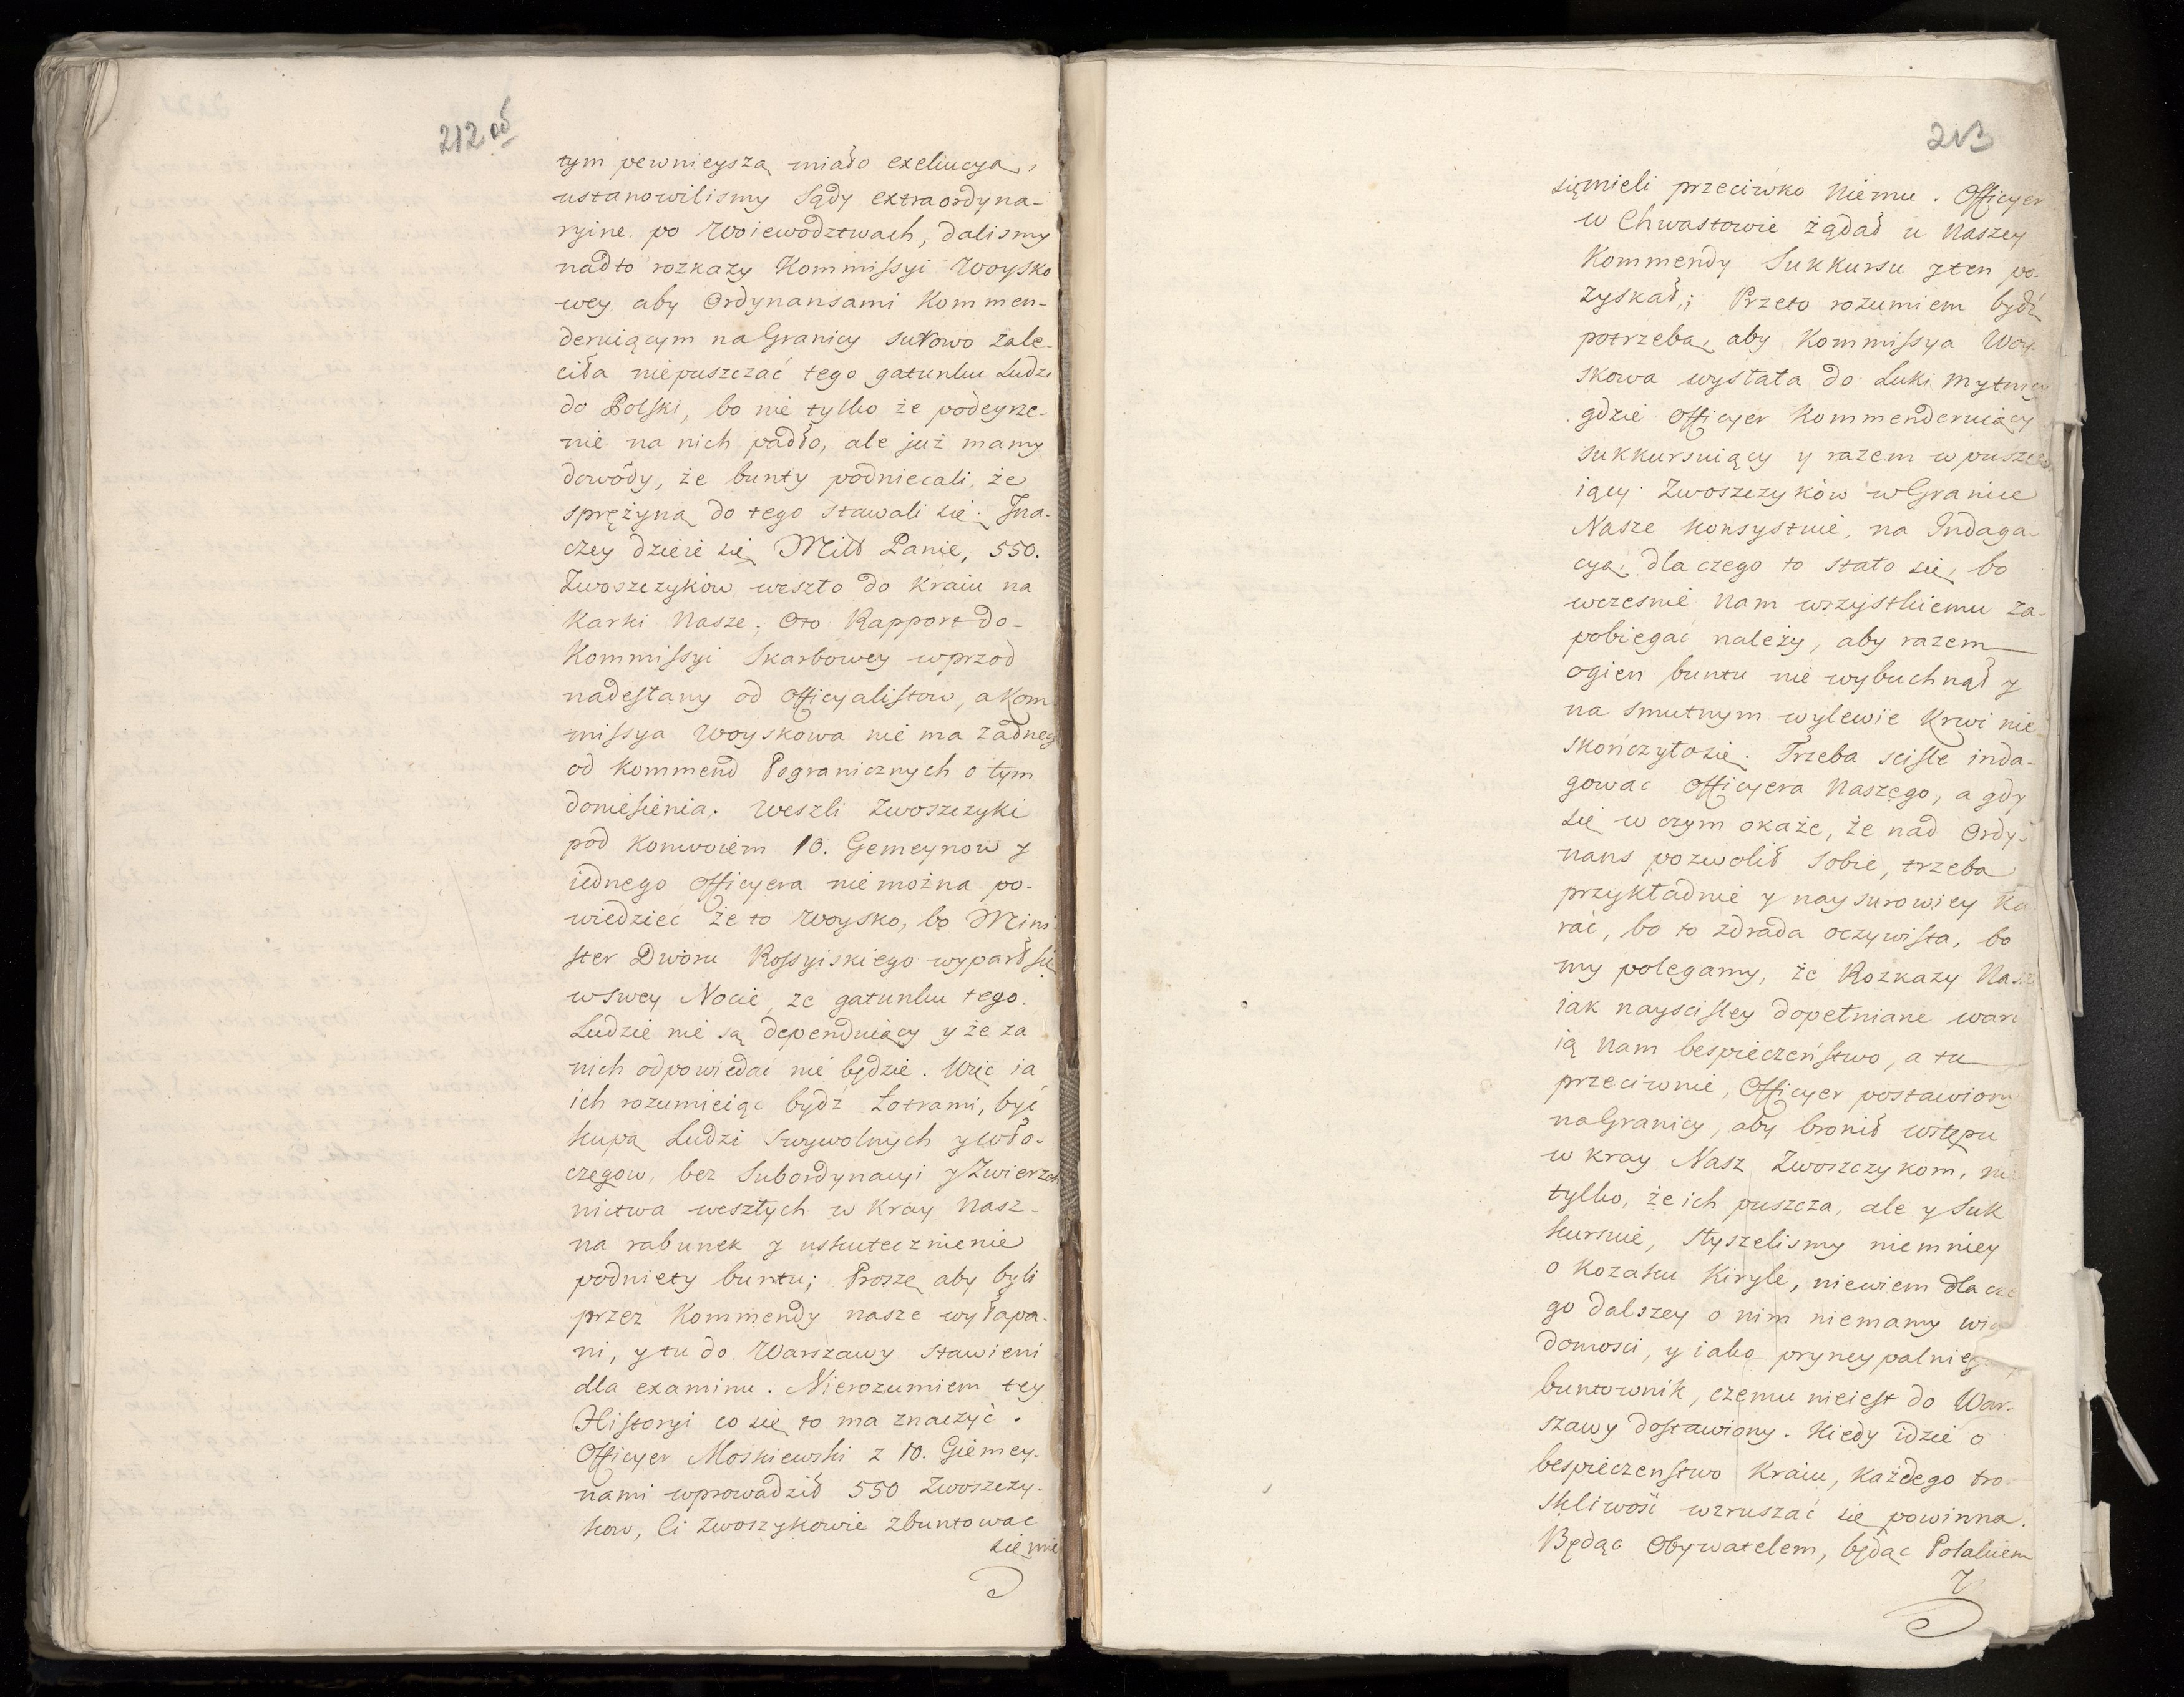 212 об
tym pewnieyszą miało exekucyą,
ustanowilismy Sądy extraordyna-
ryine po Woiewodztwach, dalismy
nadto rozkazy Kommissyi Woysko
wey aby Ordynansami Kommen-
deruiącym na Granicy surowo zale-
ciła niepuszczać tego gatunku Ludzi
do Polski, bo nie tylko że podeyrze-
nie na nich padło, ale już mamy
dowody, że bunty podniecali, że
sprężyną do tego stawali się. Ina-
czey dzieie się Mill Panie, 550.
Zwoszczyków weszło do Kraiu na
Karki Nasze; Oto Rapport do-
Kommissyi Skarbowey wprzod
nadesłany od Officyalistow, a Kom
missya Woyskowa nie ma zadneg
od Kommend Pogranicznych o tym
doniesienia. Weszli Zwoszczyki
pod Konwoiem 10. Gemeynow y
iednego Officyera nie można po-
wiedzieć że to Woysko, bo Mini
ster Dworu Rossyiskiego wyparł się
w swey Nocie, ze gatunku tego
Ludzie nie są dependuiący y że za
nich odpowiedać nie będzie. Więc ia
ich rozumieiąc bydź Łotrami, być
kupą Ludzi swywolnych y Wło-
częgow, bez Subordynacyi y Zwierzch
nictwa weszłych w Kray Nasz
na rabunek y uskutecznienie
podniety buntu; Proszę aby byli
przez Kommendy nasze wyłapa-
ni, y tu do Warszawy stawieni
dla examinu. Nierozumiem tey
Historyi co się to ma znaczyć.
Officyer Moskiewski z 10. Giemey-
nami wprowadził 550 Zwoszczy-
kow, Ci Zwoszykowie zbuntowac
się mie
213
się mieli przeciwko Niemu. Officyer
w Chwastowie żądał u Naszey
Kommendy Sukkursu y ten po-
zyskał; Przeto rozumiem bydź
potrzebą, aby Kommissya Woy-
skowa wysłała do Łuki Mytnicy
gdzie Officyer Kommenderuiący
sukkursuiący y razem wpuszcza
iący Zwoszczyków w Granice
Nasze konsystuie, na Indaga-
cyą, dla czego to stało się, bo
wczesnie Nam wszystkiemu za-
pobiegać należy, aby razem
ogien buntu nie wybuchnął y
na smutnym wylewie Krwi nie
skończyło się. Trzeba scisle inda-
gowac Officyera Naszego, a gdy
się w czym okaże, że nad Ordy-
nans pozwolił sobie, trzeba
przykładnie y naysurowiey Ka
rać, bo to zdrada oczywista, bo
my polegamy, że Rozkazy Nasze
iak nayscisley dopełniane waru
ią Nam bespieczeństwo, a tu
przeciwnie, Officyer postawiony
na Granicy, aby bronił wstępu
w kray Nasz Zwoszczykom, nie
tylko, że ich puszcza, ale y Suk
kursuie, słyszelismy niemniey
o Kozaku Kiryle, niewiem dla cze
go dalszey o nim niemamy wia
domosci, y iako pryncypalnieyszy
buntownik, czemu nieiest do War-
szawy dostawiony. Kiedy idzie o
bespieczenstwo Kraiu, każdego tro-
skliwość wzruszać się powinna.
Będąc Obywatelem, będąc Polakiem
y